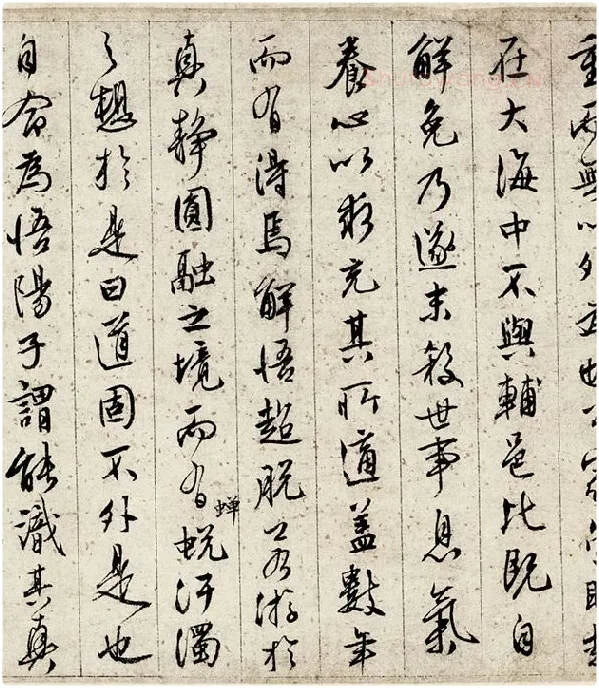 重而無
在大海中不與輔邑比既自
解免乃遂末殺世事息氣
養心以務充其所適蓋數年
而有得焉解悟超脫若游於
真靜圓融之境而有蟬蛻汙濁
之想於是曰道固不外是也
自命為悟陽子謂能識其真